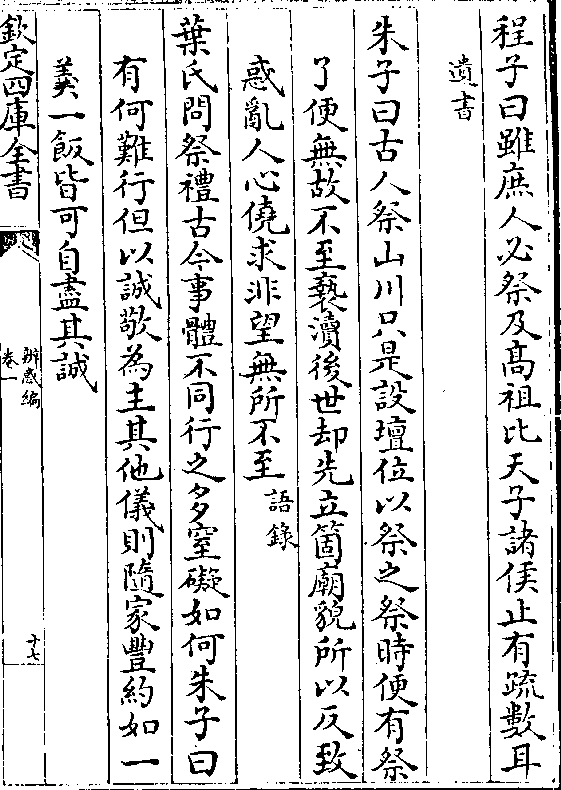 程子曰雖庶人必祭及髙祖比天子諸侯止有疏數耳
遺書
朱子曰古人祭山川只是設壇位以祭之祭時便有祭
了便無故不至褻瀆後世却先立箇廟貌所以反致
惑亂人心僥求非望無所不至語錄
葉氏問祭禮古今事體不同行之多窒礙如何朱子曰
有何難行但以誠敬為主其他儀則隨家豐約如一
羮一飯皆可自盡其誠
欽定四庫全書
辨惑編
卷一
十七